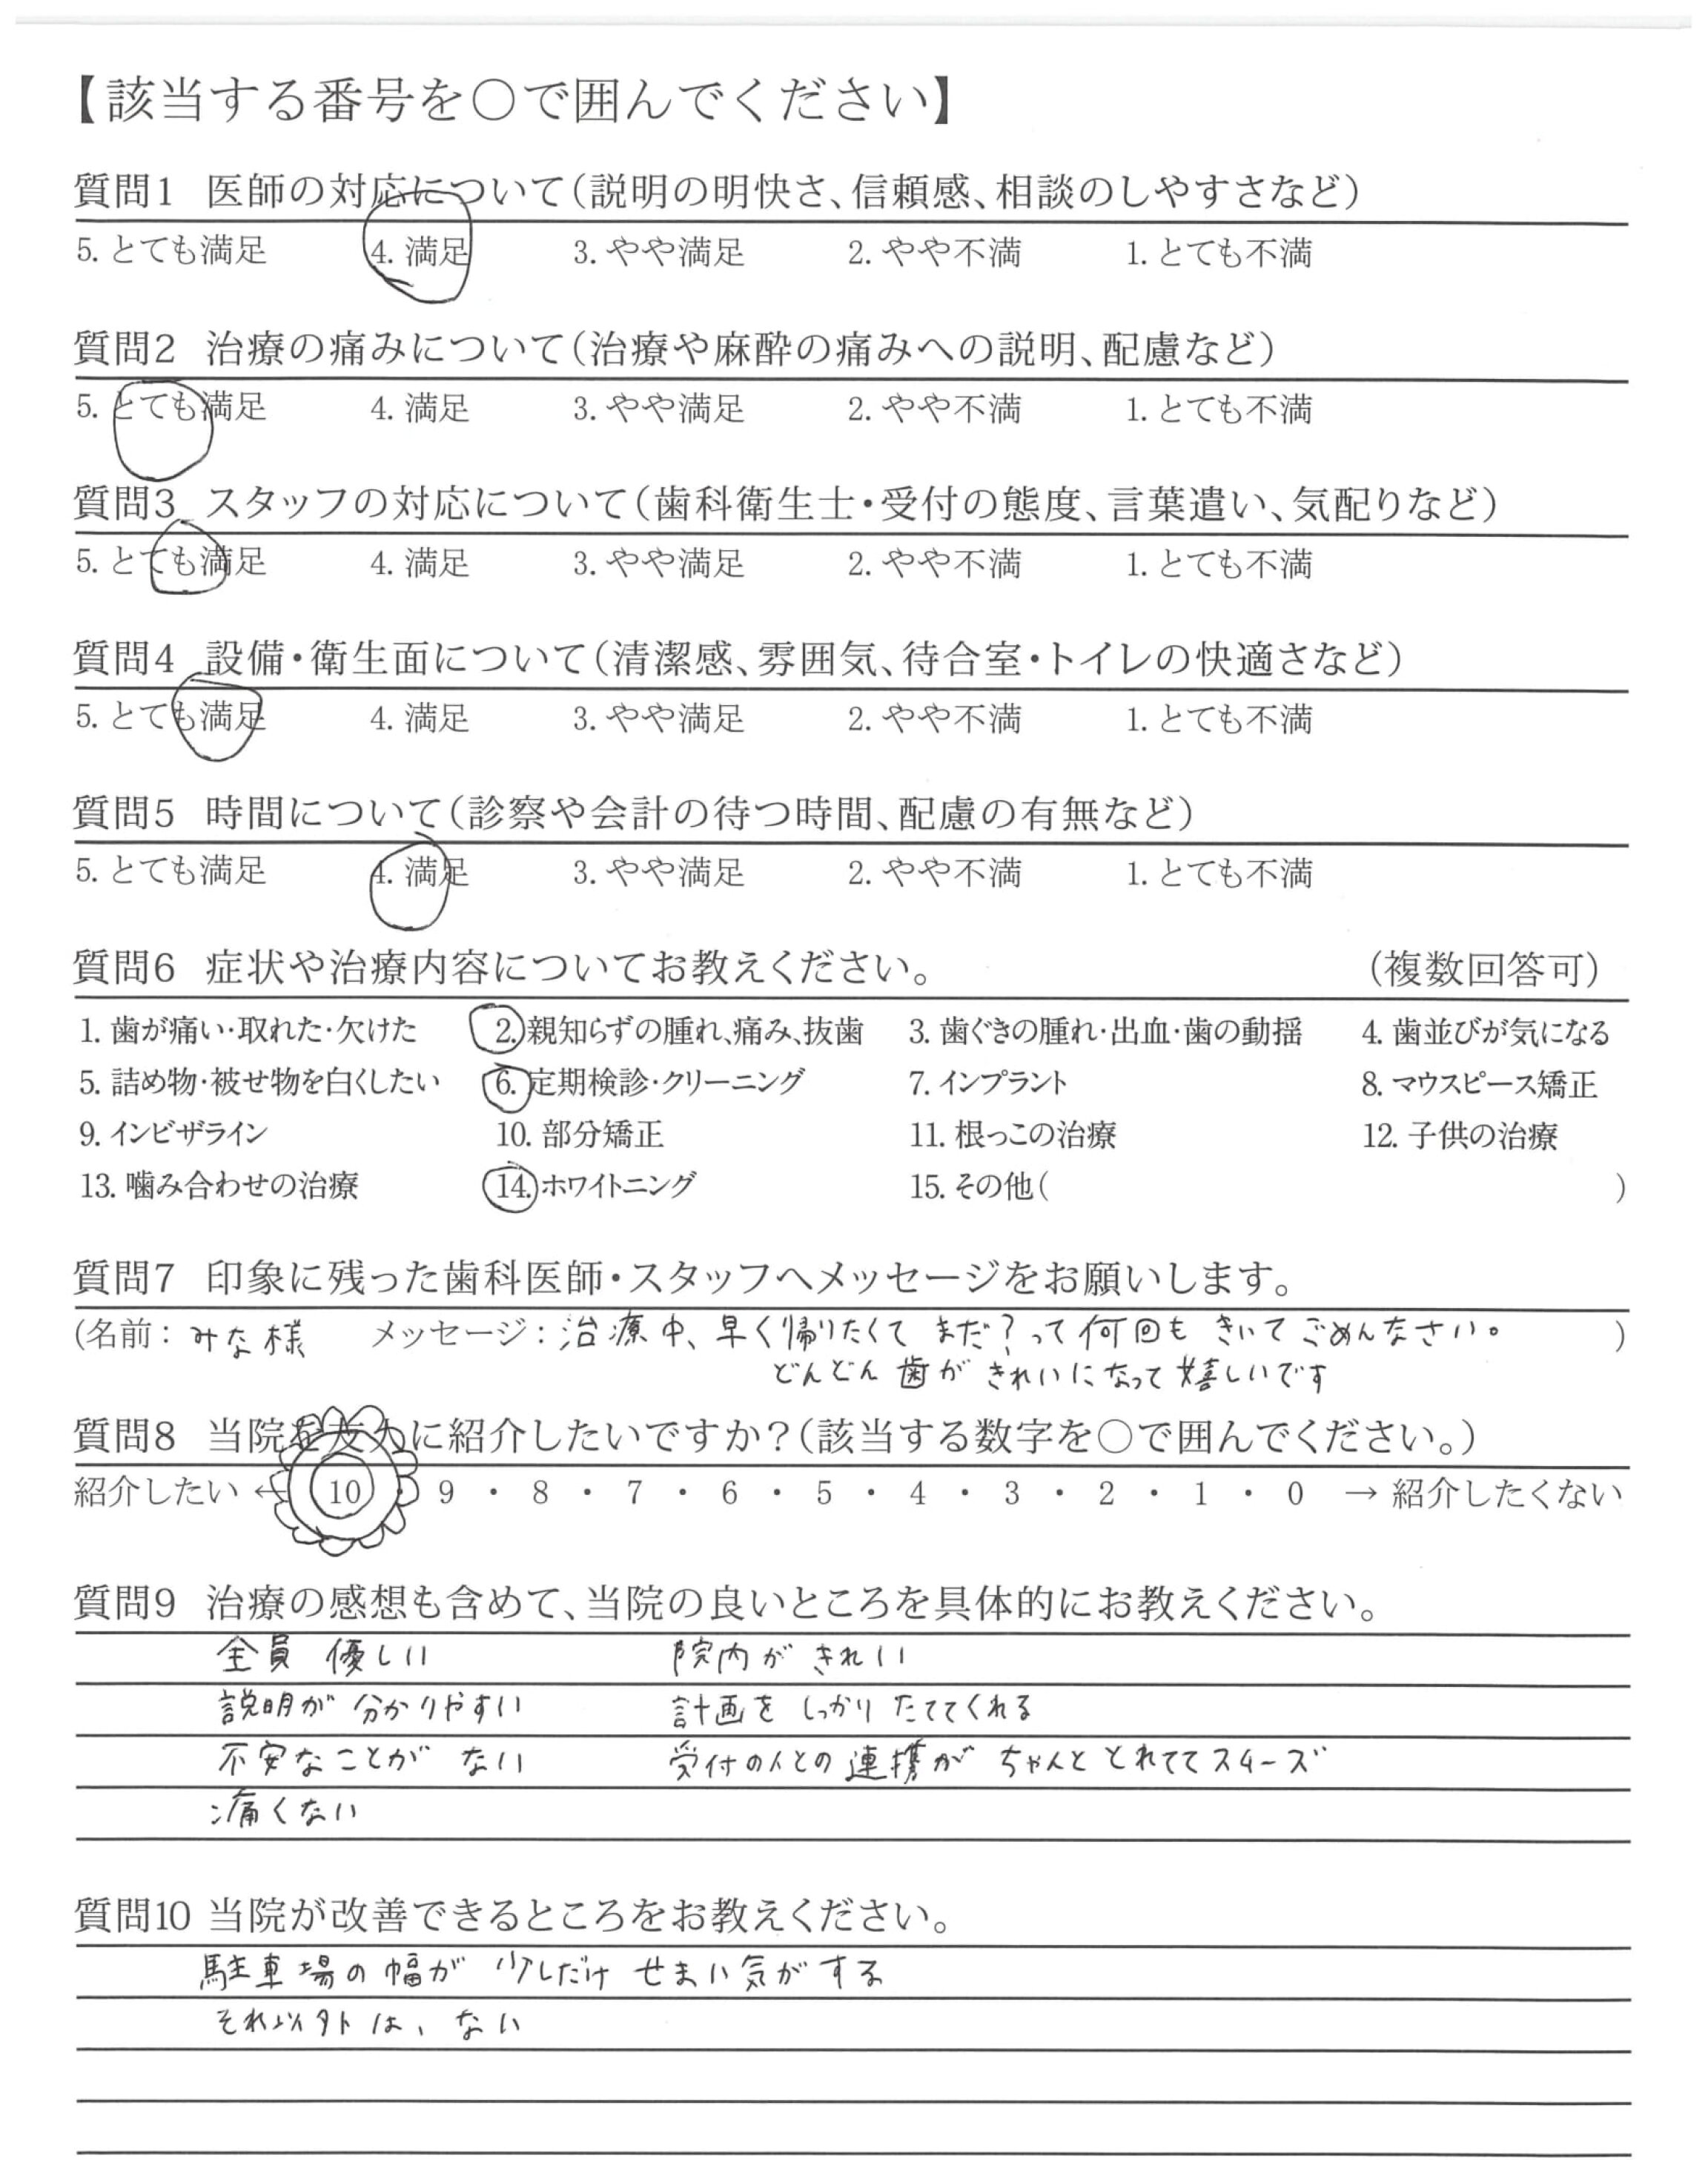 【該当する番号を○で囲んでください】
質問1 医師の対応について(説明の明快さ、信頼感、相談のしやすさなど)
5. とても満足 4. 満足 3. やや満足 2. やや不満 1. とても不満
質問2 治療の痛みについて(治療や麻酔の痛みへの説明、配慮など)
5. とても満足 4. 満足 3. やや満足 2. やや不満 1. とても不満
質問3 スタッフの対応について(歯科衛生士・受付の態度、言葉遣い、気配りなど)
5. とても満足 4. 満足 3. やや満足 2. やや不満 1. とても不満
質問4 設備・衛生面について(清潔感、雰囲気、待合室・トイレの快適さなど)
5. とても満足 4. 満足 3. やや満足 2. やや不満 1. とても不満
質問5 時間について(診察や会計の待つ時間、配慮の有無など)
5. とても満足 4. 満足 3. やや満足 2. やや不満 1. とても不満
質問6 症状や治療内容についてお教えください。 (複数回答可)
1. 歯が痛い・取れた・欠けた 2. 親知らずの腫れ、痛み、抜歯 3. 歯ぐきの腫れ・出血・歯の動揺 4. 歯並びが気になる
5. 詰め物・被せ物を白くしたい 6. 定期検診・クリーニング 7. インプラント 8. マウスピース矯正
9. インビザライン 10. 部分矯正 11. 根っこの治療 12. 子供の治療
13. 噛み合わせの治療 14. ホワイトニング 15. その他( )
質問7 印象に残った歯科医師・スタッフへメッセージをお願いします。
(名前: みな様 メッセージ: 治療中、早く帰りたくて まだ?って何回も きいて ごめんなさい。 )
どんどん 歯が きれいになって 嬉しいです
質問8 当院を友人に紹介したいですか?(該当する数字を○で囲んでください。)
紹介したい ← 10 ・ 9 ・ 8 ・ 7 ・ 6 ・ 5 ・ 4 ・ 3 ・ 2 ・ 1 ・ 0 → 紹介したくない
質問9 治療の感想も含めて、当院の良いところを具体的にお教えください。
全員 優しい 院内が きれい
説明が 分かりやすい 計画を しっかり たててくれる
不安なことが ない 受付の人との 連携が ちゃんと とれててスムーズ
痛くない
質問10 当院が改善できるところをお教えください。
駐車場の 幅が 少しだけ せまい気がする
それ以外は、ない